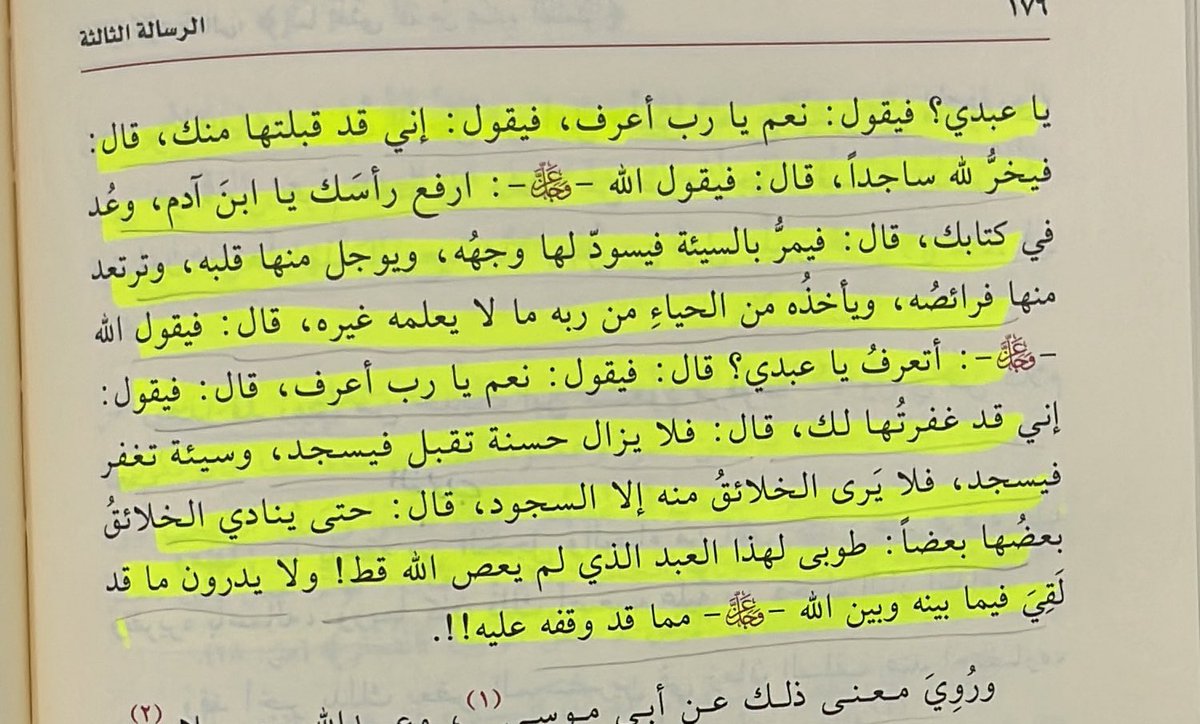 ١٧٦
الرسالة الثالثة
يا عبدي؟ فيقول: نعم يا رب أعرف، فيقول: إني قد قبلتها منك، قال:
فيخرُّ لله ساجداً، قال: فيقول الله -عَزَّ وَجَلَّ-: ارفع رأسَك يا ابنَ آدم، وعُد
في كتابك، قال: فيمرُّ بالسيئة فيسودّ لها وجهُه، ويوجل منها قلبه، وترتعد
منها فرائصُه، ويأخذُه من الحياءِ من ربه ما لا يعلمه غيره، قال: فيقول الله
-عَزَّ وَجَلَّ-: أتعرفُ يا عبدي؟ قال: فيقول: نعم يا رب أعرف، قال: فيقول:
إني قد غفرتُها لك، قال: فلا يزال حسنة تقبل فيسجد، وسيئة تغفر
فيسجد، فلا يَرى الخلائقُ منه إلا السجود، قال: حتى ينادي الخلائقُ
بعضُها بعضاً: طوبى لهذا العبد الذي لم يعص الله قط! ولا يدرون ما قد
لَقِيَ فيما بينه وبين الله -عَزَّ وَجَلَّ- مما قد وقفه عليه!!.
ورُوِيَ معنى ذلك عن أبي موسى (١)، (٢)